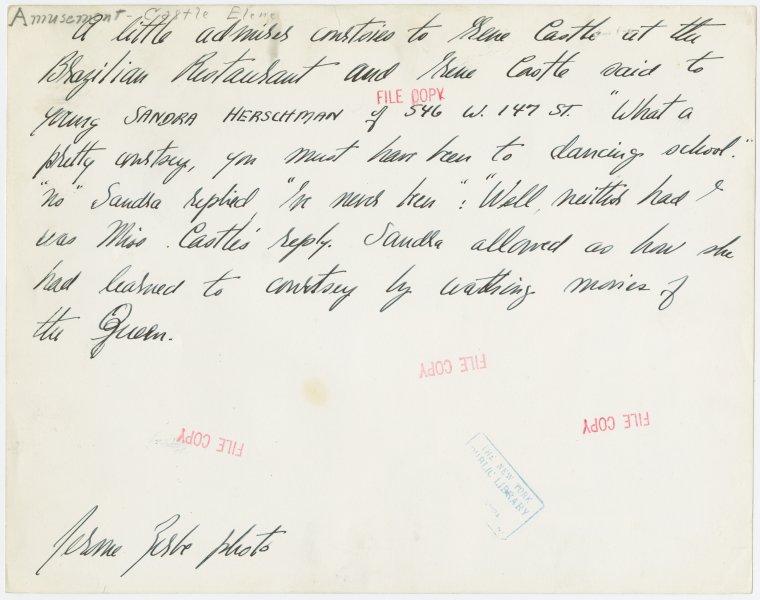 Amusement - Castle Elene
A little admirer courtsies to Irene Castle at the
Brazilian Restaurant and Irene Castle said to
FILE COPY
young SANDRA HERSCHMAN of 546 W. 147 ST. "What a
pretty courtsey, you must have been to dancing school."
"No" Sandra replied, "I've never been": "Well, neither had I
was Miss Castle's reply. Sandra allowed as how she
had learned to courtsey by watching movies of
the Queen.
FILE COPY
FILE COPY
FILE COPY
THE NEW YORK
PUBLIC LIBRARY
Jerome Zerbe photo